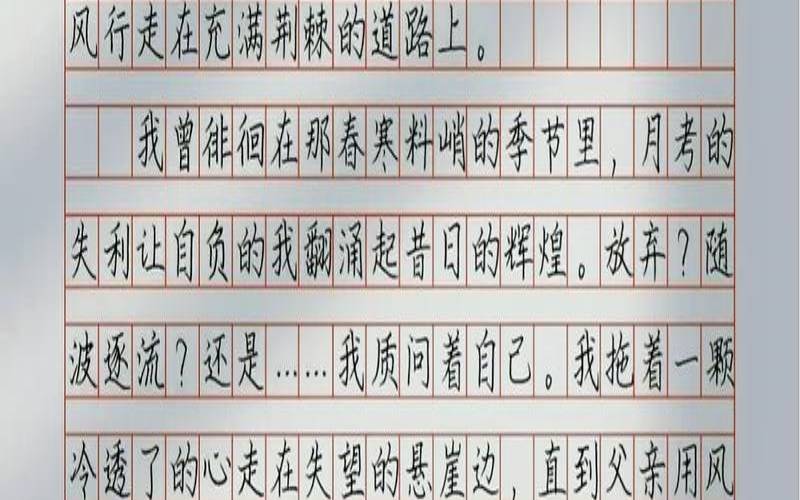 风行走在充满荆棘的道路上。
我曾徘徊在那春寒料峭的季节里，月考的
失利让自负的我翻涌起昔日的辉煌。放弃？随
波逐流？还是……我质问着自己。我拖着一颗
冷透了的心走在失望的悬崖边，直到父亲用风